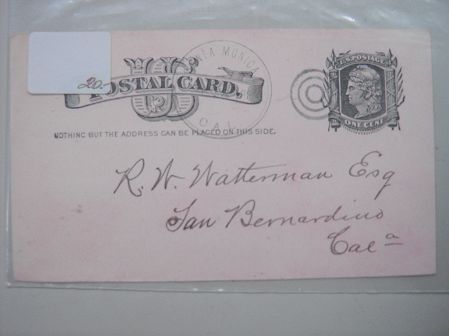 20.-
US
POSTAL CARD.
SANTA MONICA
CAL.
U.S. POSTAGE
ONE CENT
NOTHING BUT THE ADDRESS CAN BE PLACED ON THIS SIDE.
R. W. Watterman Esq
San Bernardino
Cal a